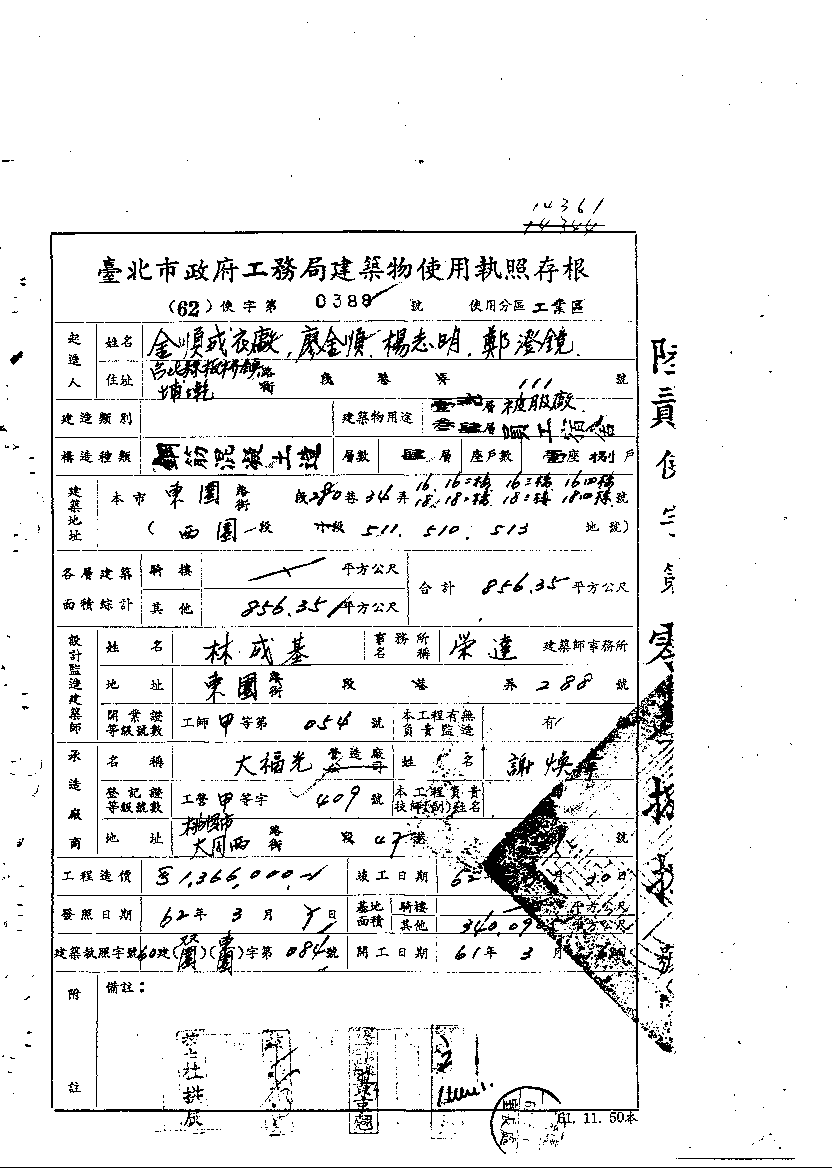 14361
14344
臺北市政府工務局建築物使用執照存根
(62)使字第 0388 號 使用分區 工業區
起造人 姓名 金順成衣廠.廖金順.楊志明.鄭澄鏡.
住址 台北縣板橋鎮 埔墘 路街 段 巷 弄 111 號
建造類別 建築物用途 層被服廠 層員工宿舍
構造種類 鋼筋混凝土造 層數 肆 層 座戶數 壹座捌戶
建築地址 本市 東園 路街 段280巷34弄 16.16二樓16三樓16四樓 18.18二樓18三樓18四樓號
(西園一段 小段 511.510.513 地號)
各層建築面積綜計 騎樓 平方公尺 合計 856.35 平方公尺
其他 856.35 平方公尺
設計監造建築師 姓名 林成基 事務所名稱 榮達 建築師事務所
地址 東園 路街 段 巷 弄 288 號
開業證等級號數 工師甲等第 054 號 本工程有無負責監造 有
承造廠商 名稱 大福光 營造廠公司 姓名 謝煥
登記證等級號數 工營甲等字 409 號 本工程負責技師(技副)姓名
地址 桃園市 大同西 路街 段 47 巷 號
工程造價 1,366,000 竣工日期 62
發照日期 62年 3月 日 基地面積 騎樓 平方公尺
其他 340.09 平方公尺
建築執照字號 60建( )( )字第 084 號 開工日期 61年 3月
附註 備註：
61.11.50本